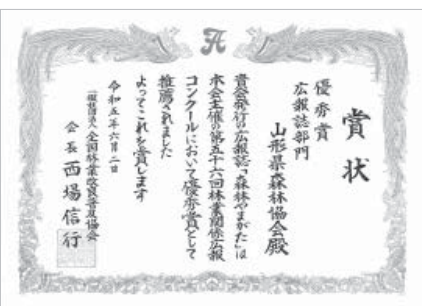 賞状
優秀賞
広報誌部門
山形県森林協会殿
貴会発行の広報誌「森林やまがた」は
本会主催の第五十六回林業関係広報
コンクールにおいて優秀賞として
推薦されました
よってこれを賞します
令和五年六月二日
一般社団法人全国林業改良普及協会
会長 西場信行